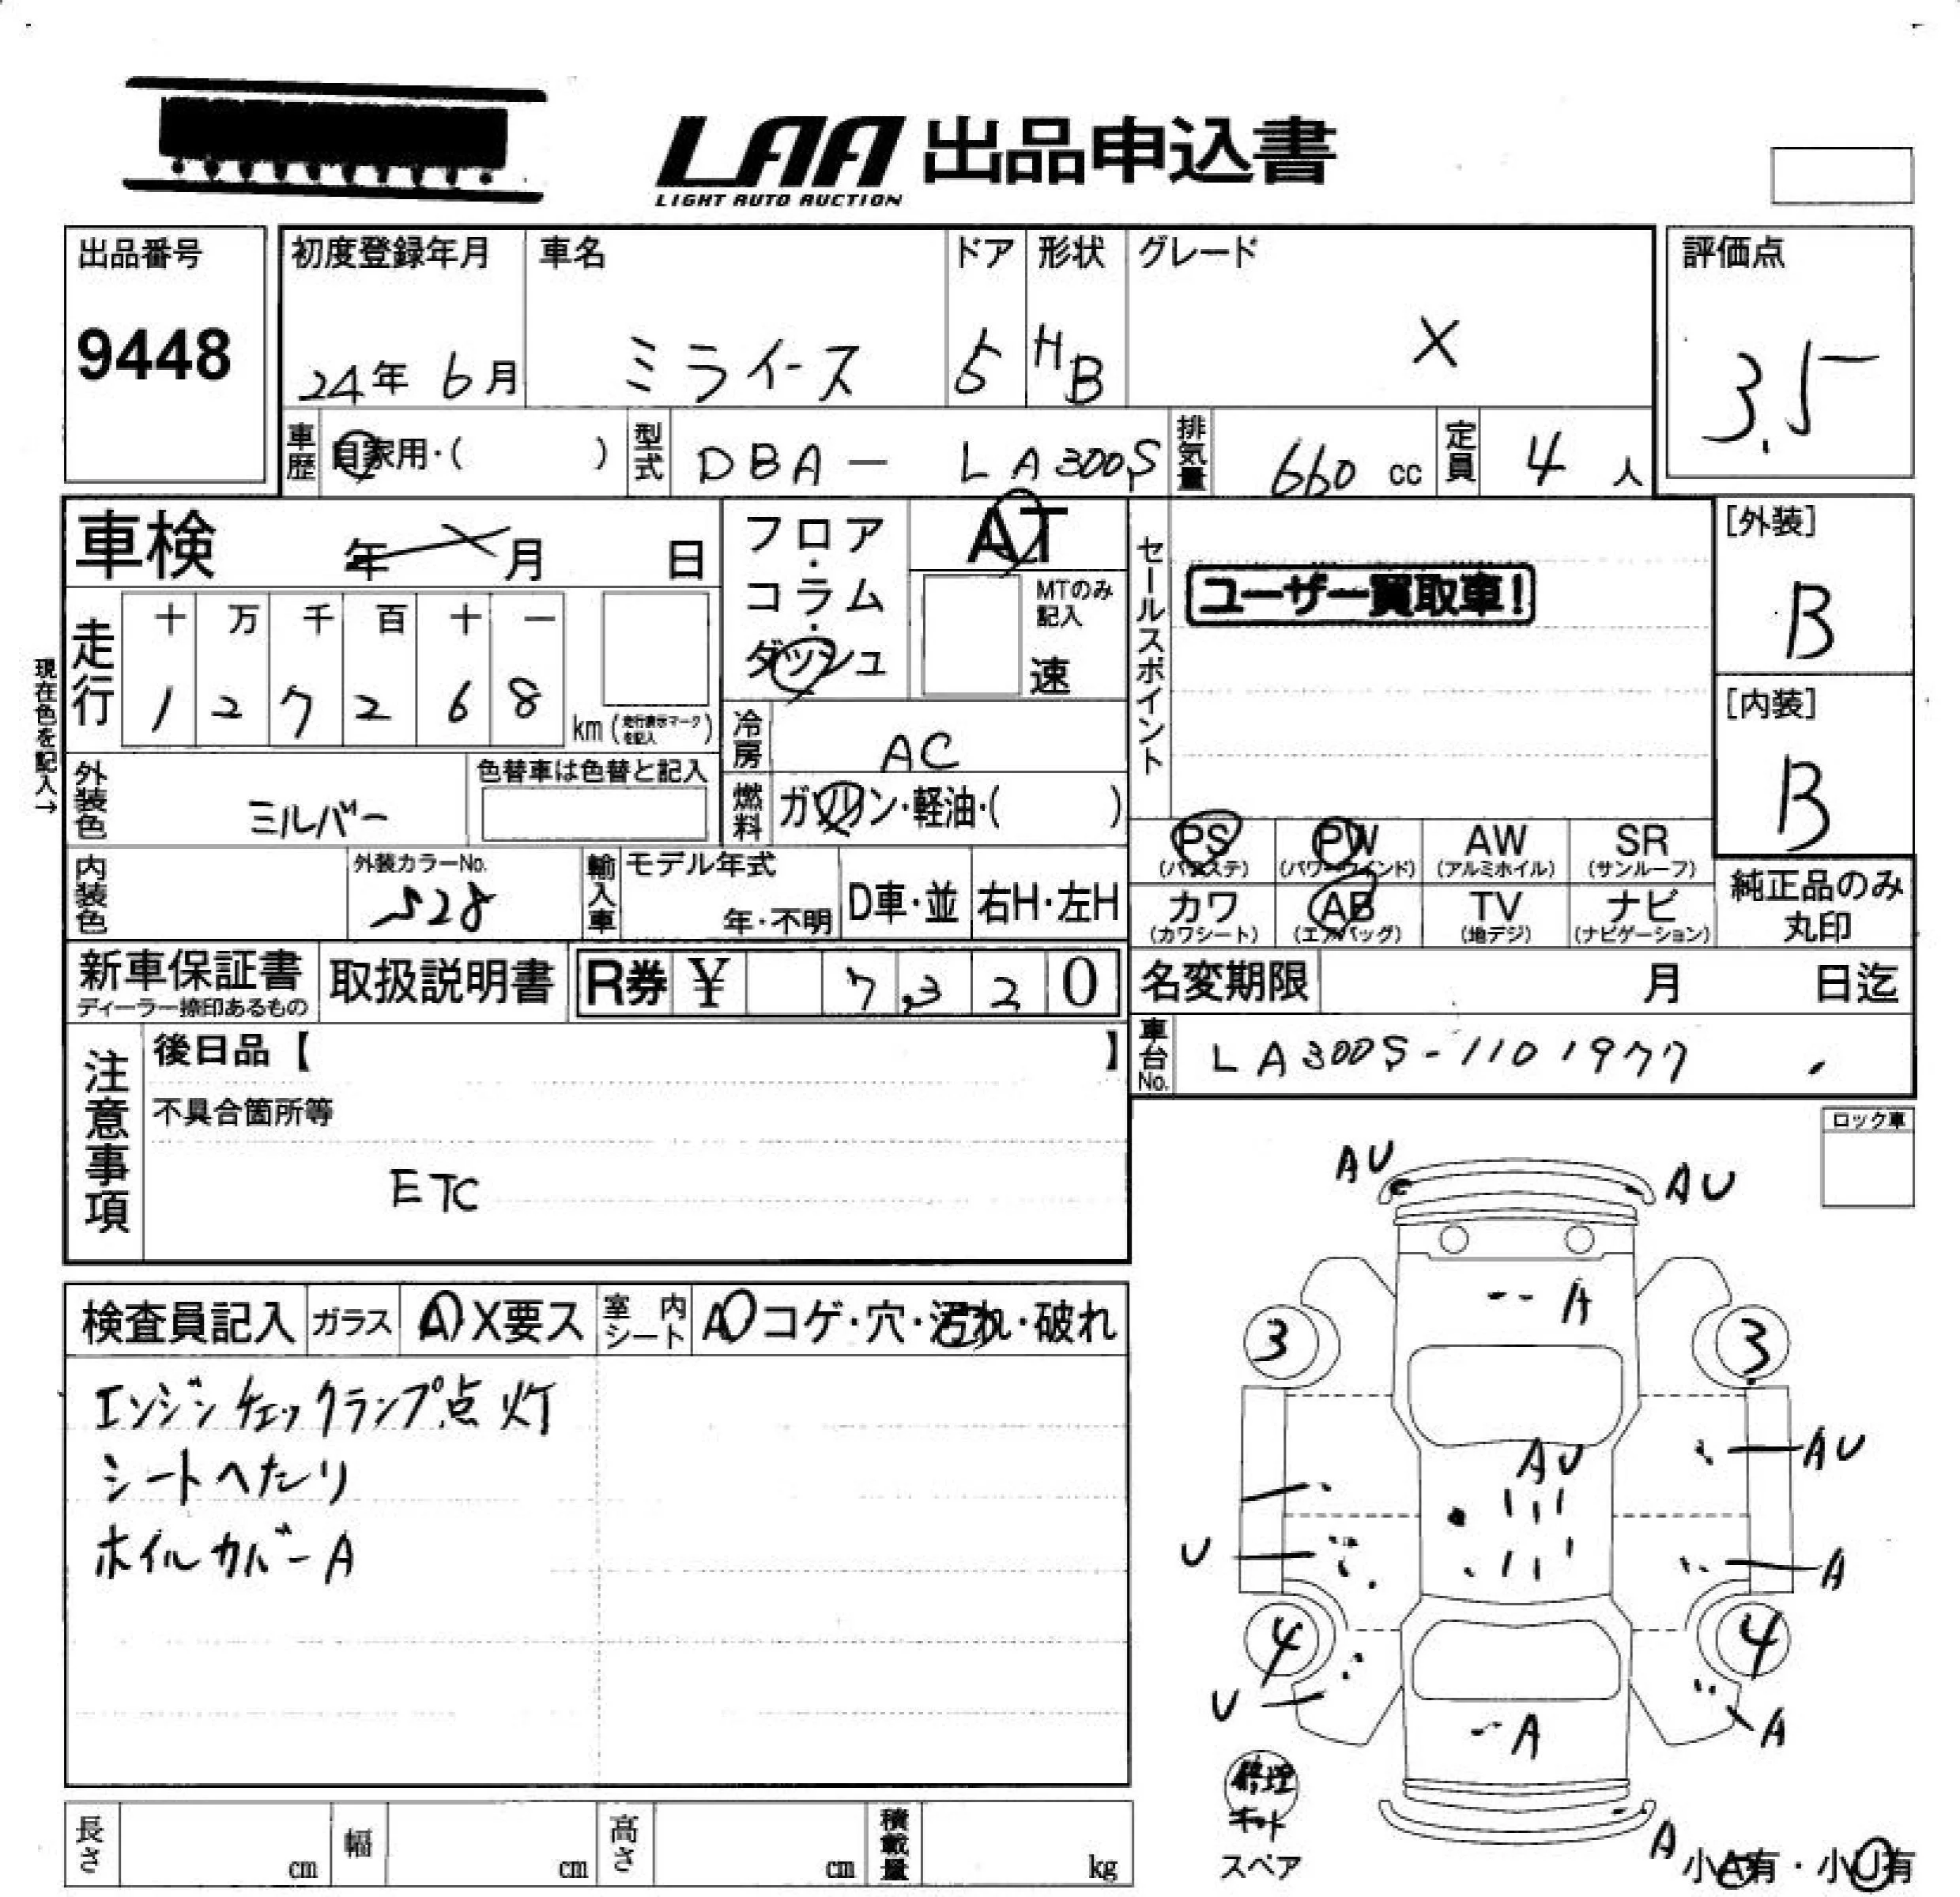 LAA 出品申込書
LIGHT AUTO AUCTION
出品番号
9448
初度登録年月
24年 6月
車名
ミライース
ドア
5
形状
HB
グレード
X
評価点
3.5
車歴 自家用・( )
型式 DBA - LA300S
排気量 660 cc
定員 4 人
車検 年 月 日
フロア・コラム・ダッシュ
AT
MTのみ記入
速
セールスポイント
ユーザー買取車!
[外装]
B
[内装]
B
現在色を記入→
走行 十 万 千 百 十 一
1 2 7 2 6 8 km (走行表示マークを記入)
冷房 AC
燃料 ガソリン・軽油・( )
外装色 シルバー
色替車は色替と記入
内装色
外装カラーNo.
S28
輸入車
モデル年式
年・不明
D車・並
右H・左H
PS (パワステ)
PW (パワーウインド)
AW (アルミホイル)
SR (サンルーフ)
カワ (カワシート)
AB (エアバッグ)
TV (地デジ)
ナビ (ナビゲーション)
純正品のみ丸印
新車保証書
ディーラー捺印あるもの
取扱説明書
R券 ¥ 7,320
名変期限 月 日迄
車台No. LA300S-1101977
注意事項
後日品【 】
不具合箇所等
ETC
ロック車
検査員記入
ガラス A X要ス
室内シート A コゲ・穴・汚れ・破れ
エンジンチェックランプ点灯
シートへたり
ホイルカバーA
AU
AU
A
3
3
AU
AU
U
A
4
4
U
A
A
修理キット
スペア
A
小A有・小U有
長さ cm
幅 cm
高さ cm
積載量 kg